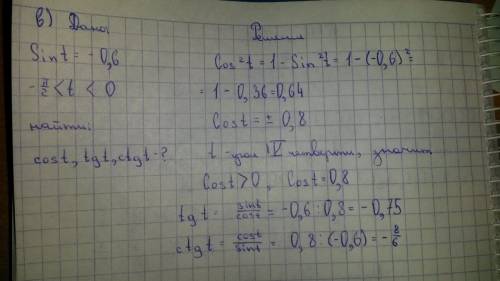 в) Дано:
Sin t = -0,6
-π/2 < t < 0
найти:
cos t, tg t, ctg t - ?
Решение
Cos²t = 1 - Sin²t = 1 - (-0,6)² =
= 1 - 0,36 = 0,64
Cos t = ± 0,8
t - угол IV четверти, значит
Cos t > 0, Cos t = 0,8
tg t = sin t/cos t = -0,6 : 0,8 = -0,75
ctg t = cos t/sin t = 0,8 : (-0,6) = -8/6